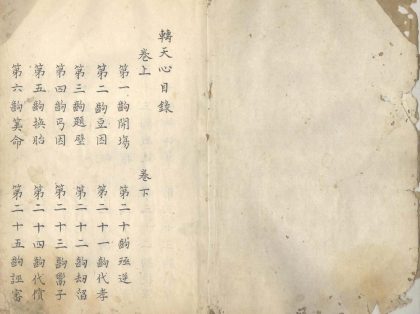 轉天心目錄
卷上　卷下
第一齣開塲　第二十齣殛逆
第二齣豆因　第二十一齣代孝
第三齣題壁　第二十二齣劫留
第四齣弓因　第二十三齣鬻子
第五齣換胎　第二十四齣代償
第六齣筭命　第二十五齣誣審